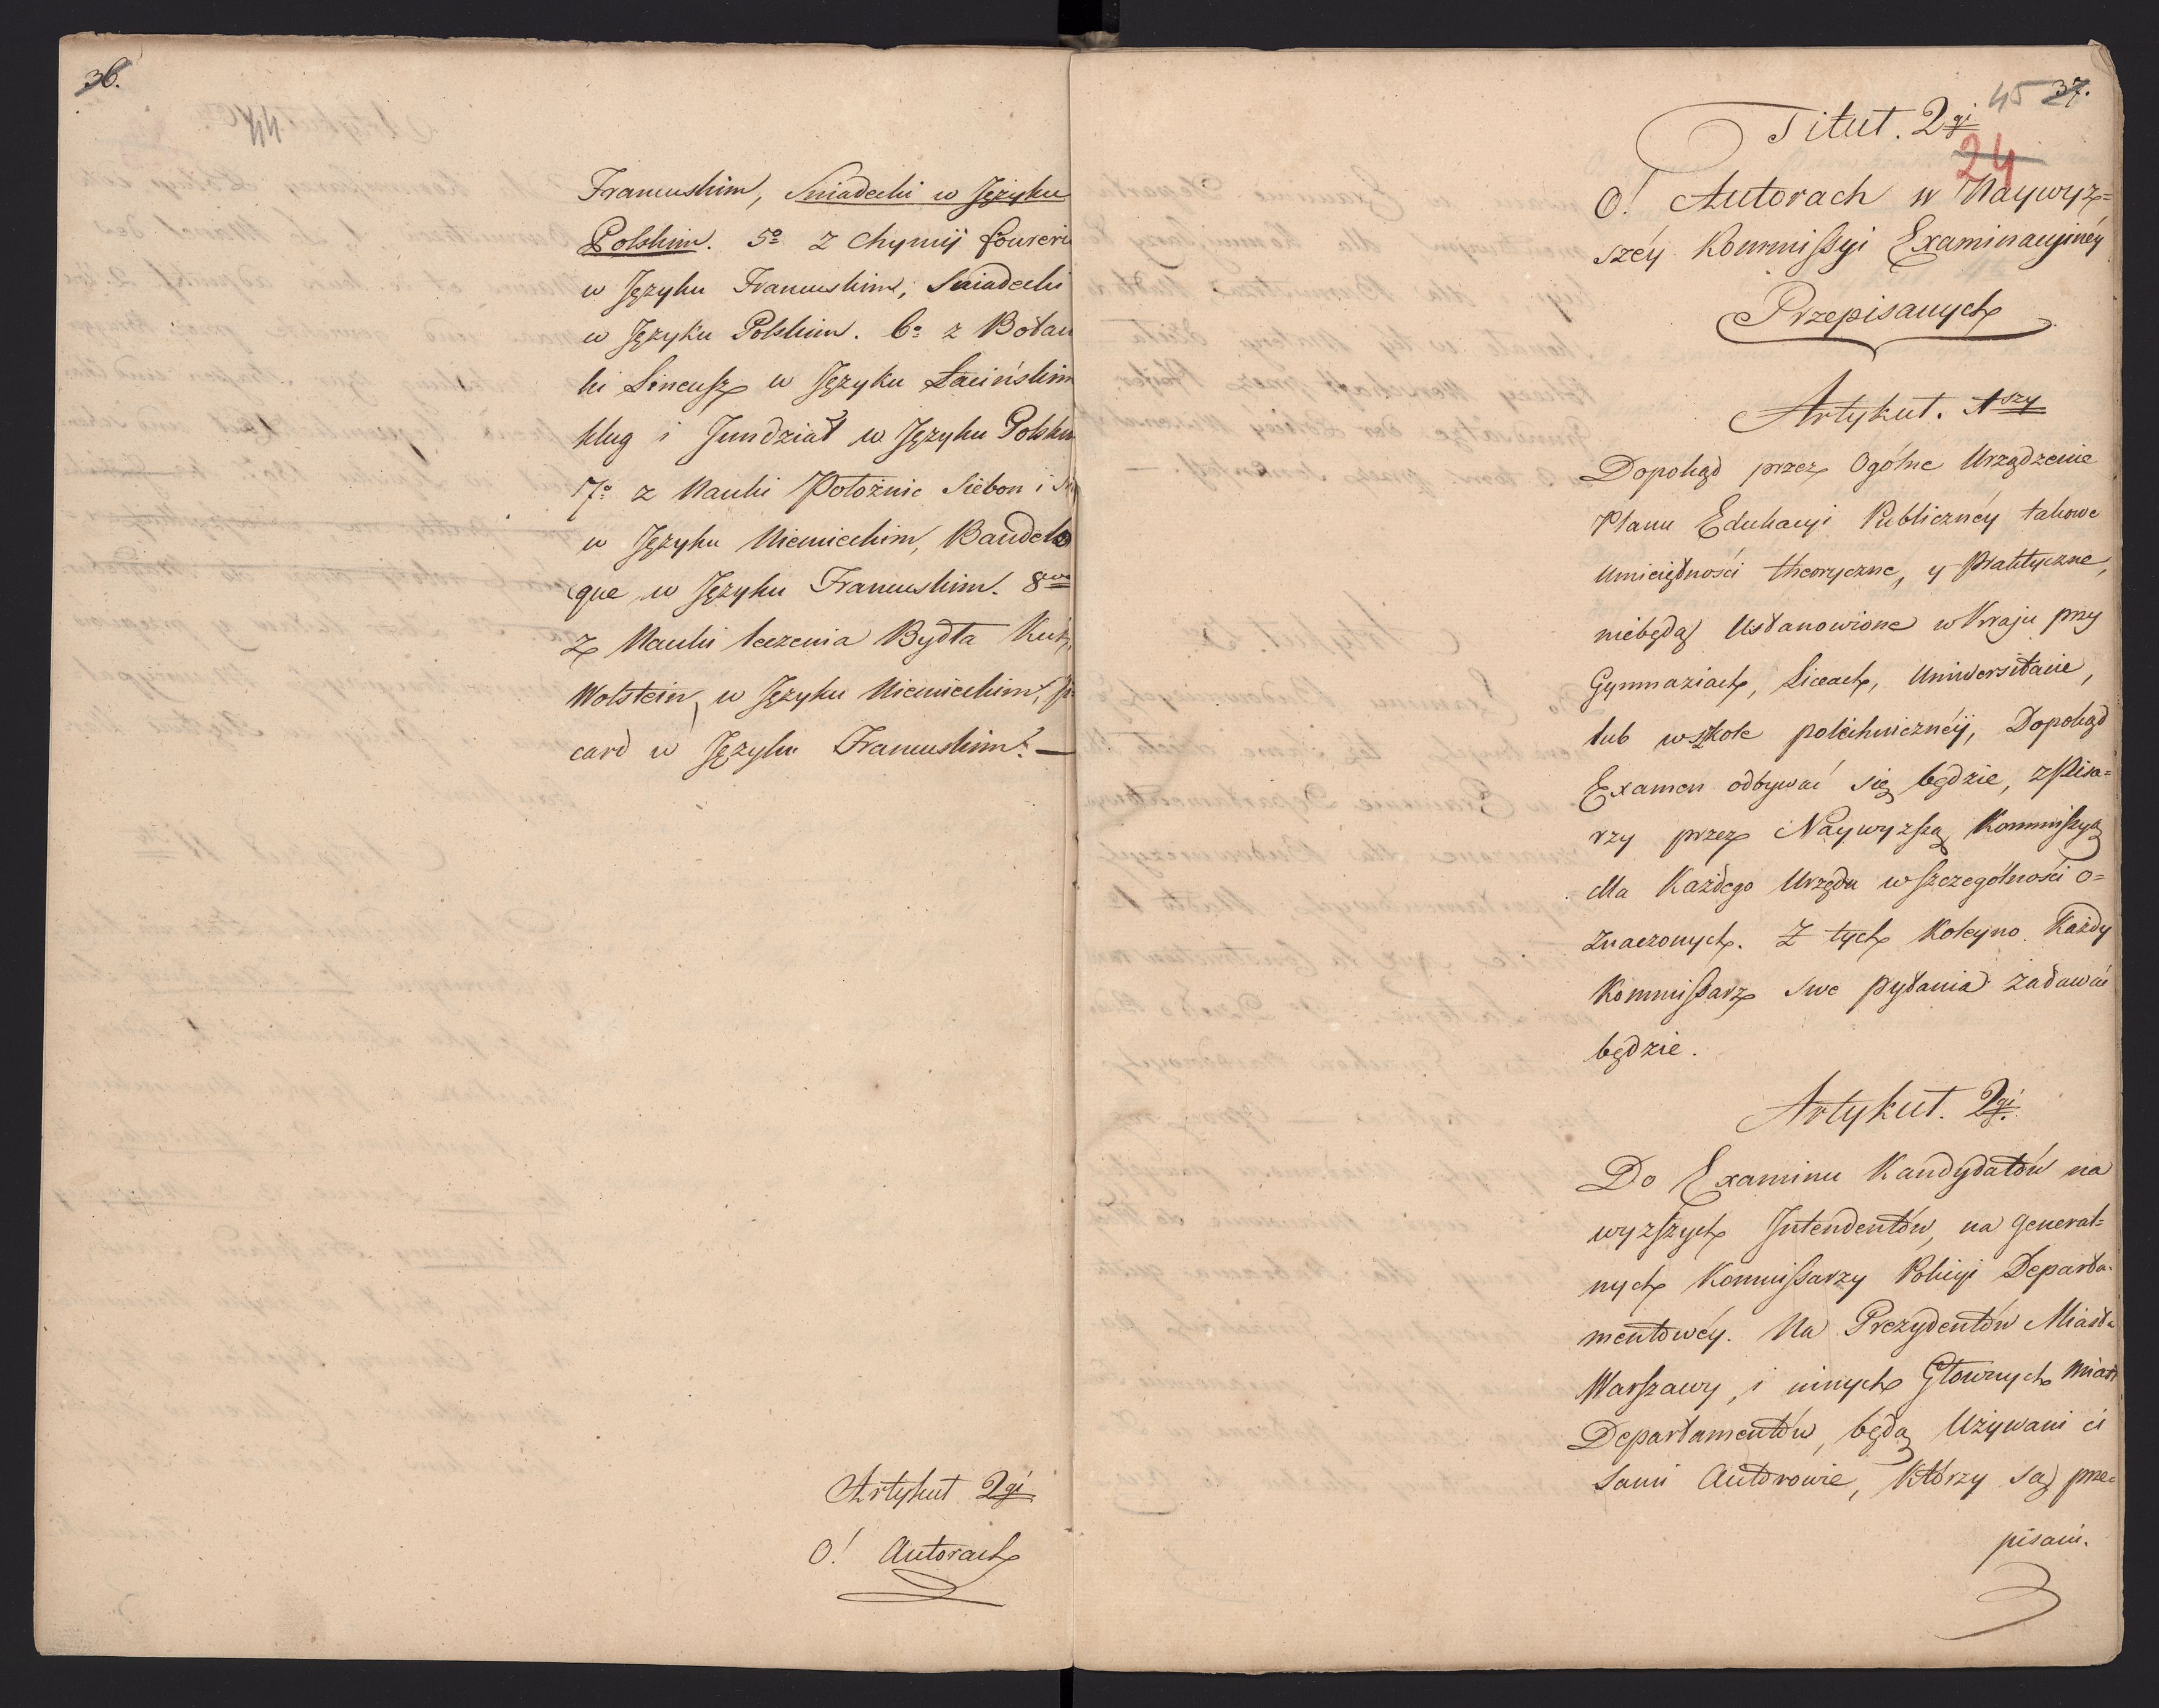 36.
Francuskim, Sniadecki w Języku
Polskim. 5º z Chymij fourcri
w Języku Francuskim, Sniadecki
w Języku Polskim. 6º z Botani
ki Lineusz w Języku Łacińskim
kług i Jundział w Języku Polskim
7º z Nauki Położnic Siebon i
w Języku Niemieckim, Baudelo
que w Języku Francuskim. 8vo
z Nauki leczenia Bydła
Wolstein, w Języku Niemieckim,
card w Języku Francuskim. —
Artykuł 2gi
O! Autorach
45 37.
Tituł. 2gi
24
O! Autorach w Naywyz=
széy Kommissyi Examinacyinéy
Przepisanych
Artykuł. 1szy
Dopokąd przez Ogólne Urządzenie
Planu Edukacyi Publicznéy takowe
Umieiętności theoryczne, y Praktyczne,
niebędą Ustanowione w Kraju przy
Gymnaziach, Liceach, Uniwersitacie,
lub wszkole politechnicznéy, Dopokąd
Examen odbywać się będzie, z Pisa=
rzy przez Naywyzszą Kommissyą
dla Każdego Urzędu w szczególności o=
znaczonych. Z tych Koleyno Każdy
Kommissarz swe pytania zadawać
będzie.
Artykuł. 2gi.
Do Examinu Kandydatów na
wyzszych Intendentów, na General=
nych Kommissarzy Policyi Departa-
mentowéy. Na Prezydentów Miasta
Warszawy, i innych Głownych Miast
Departamentów, będą Używani ci
sami Autorowie, Którzy są prze=
pisani.